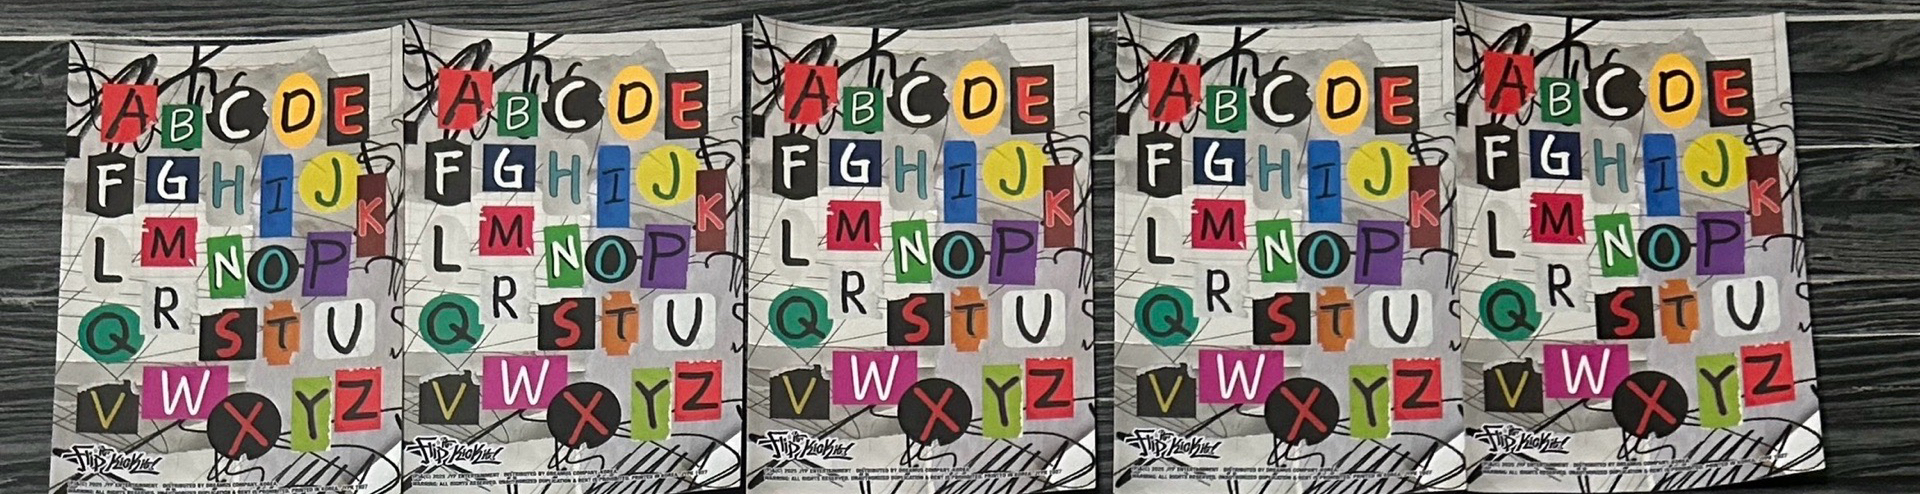 A B C D E
F G H I J K
L M N O P
Q R S T U
V W X Y Z
Flip it Kick it!
(C) 2025 JYP ENTERTAINMENT DISTRIBUTED BY DREAMUS COMPANY, KOREA.
WARNING: ALL RIGHTS RESERVED. UNAUTHORIZED DUPLICATION & RENT IS PROHIBITED. PRINTED IN KOREA.
A B C D E
F G H I J K
L M N O P
Q R S T U
V W X Y Z
Flip it Kick it!
(C) 2025 JYP ENTERTAINMENT DISTRIBUTED BY DREAMUS COMPANY, KOREA.
WARNING: ALL RIGHTS RESERVED. UNAUTHORIZED DUPLICATION & RENT IS PROHIBITED. PRINTED IN KOREA.
A B C D E
F G H I J K
L M N O P
Q R S T U
V W X Y Z
Flip it Kick it!
(C) 2025 JYP ENTERTAINMENT DISTRIBUTED BY DREAMUS COMPANY, KOREA.
WARNING: ALL RIGHTS RESERVED. UNAUTHORIZED DUPLICATION & RENT IS PROHIBITED. PRINTED IN KOREA.
A B C D E
F G H I J K
L M N O P
Q R S T U
V W X Y Z
Flip it Kick it!
(C) 2025 JYP ENTERTAINMENT DISTRIBUTED BY DREAMUS COMPANY, KOREA.
WARNING: ALL RIGHTS RESERVED. UNAUTHORIZED DUPLICATION & RENT IS PROHIBITED. PRINTED IN KOREA.
A B C D E
F G H I J K
L M N O P
Q R S T U
V W X Y Z
Flip it Kick it!
(C) 2025 JYP ENTERTAINMENT DISTRIBUTED BY DREAMUS COMPANY, KOREA.
WARNING: ALL RIGHTS RESERVED. UNAUTHORIZED DUPLICATION & RENT IS PROHIBITED. PRINTED IN KOREA.